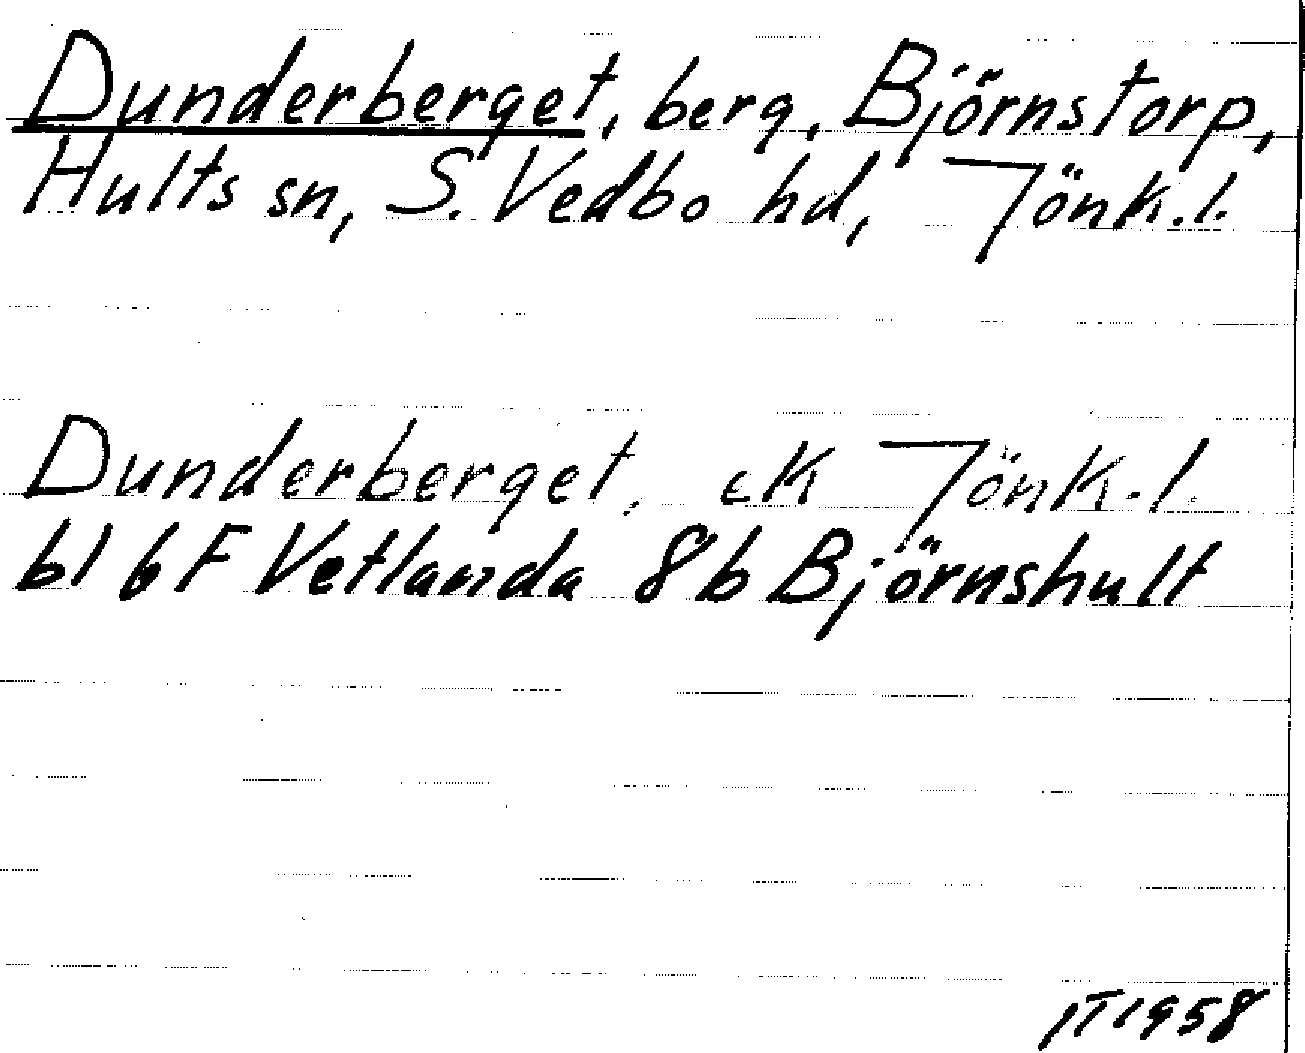 Dunderberget, berg, Björnstorp,
Hults sn, S. Vedbo hd, Jönk. l.
Dunderberget, ek Jönk. l.
bl 6F Vetlanda 8b Björnshult
1958